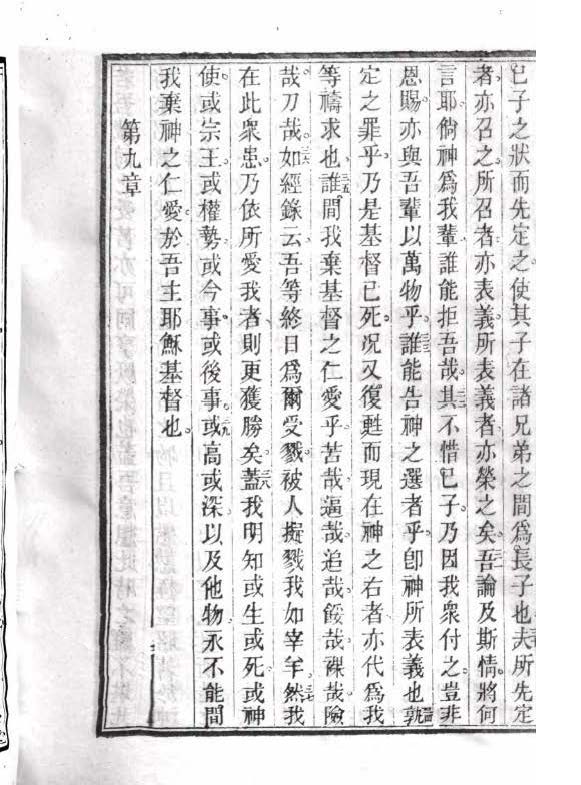 已子之狀而先定之使其子在諸兄弟之間爲長子也夫所先定
者亦召之所召者亦表義所表義者亦榮之矣吾論及斯情將何
言耶倘神爲我輩誰能拒吾哉其不惜已子乃因我衆付之豈非
恩賜亦與吾輩以萬物乎誰能告神之選者乎卽神所表義也孰
定之罪乎乃是基督已死况又復甦而現在神之右者亦代爲我
等禱求也誰間我棄基督之仁愛乎苦哉逼哉追哉餒哉裸哉險
哉刀哉如經錄云吾等終日爲爾受戮被人擬戮我如宰羊然我
在此衆患乃依所愛我者則更獲勝矣蓋我明知或生或死或神
使或宗王或權勢或今事或後事或高或深以及他物永不能間
我棄神之仁愛於吾主耶穌基督也
第九章